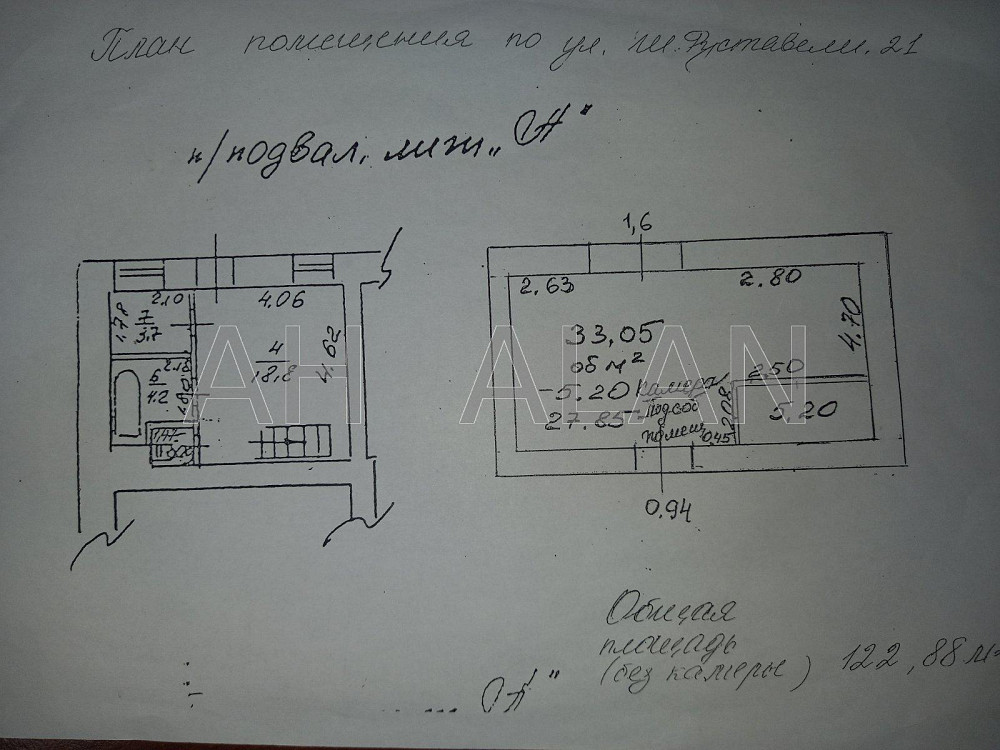 План помещения по ул. Ш. Руставели. 21
п/подвал. лит. „А"
1,6
2.63
2.80
2.10
4.06
1.78
7
3.7
4
18,8
4.62
33,05
об м²
4.70
AH ALAN
6
4.2
2.18
-5.20 камера
27.85
подсоб
помещ
2.50
2.08
5.20
0.45
0.94
Общая
площадь
(без камеры) 122,88 м²
„А"